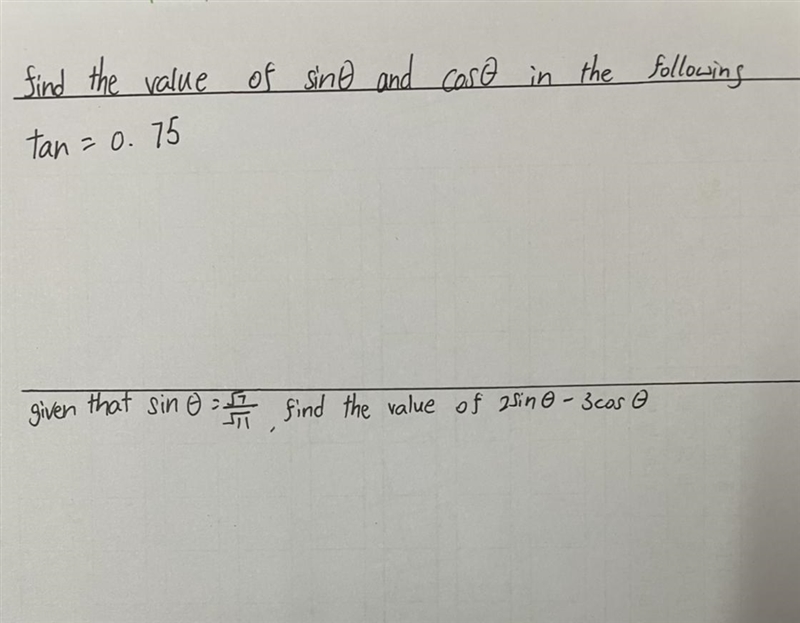 find the value of sinθ and cosθ in the following
tan = 0.75
given that sin θ = √7/√11, find the value of 2sin θ - 3cos θ